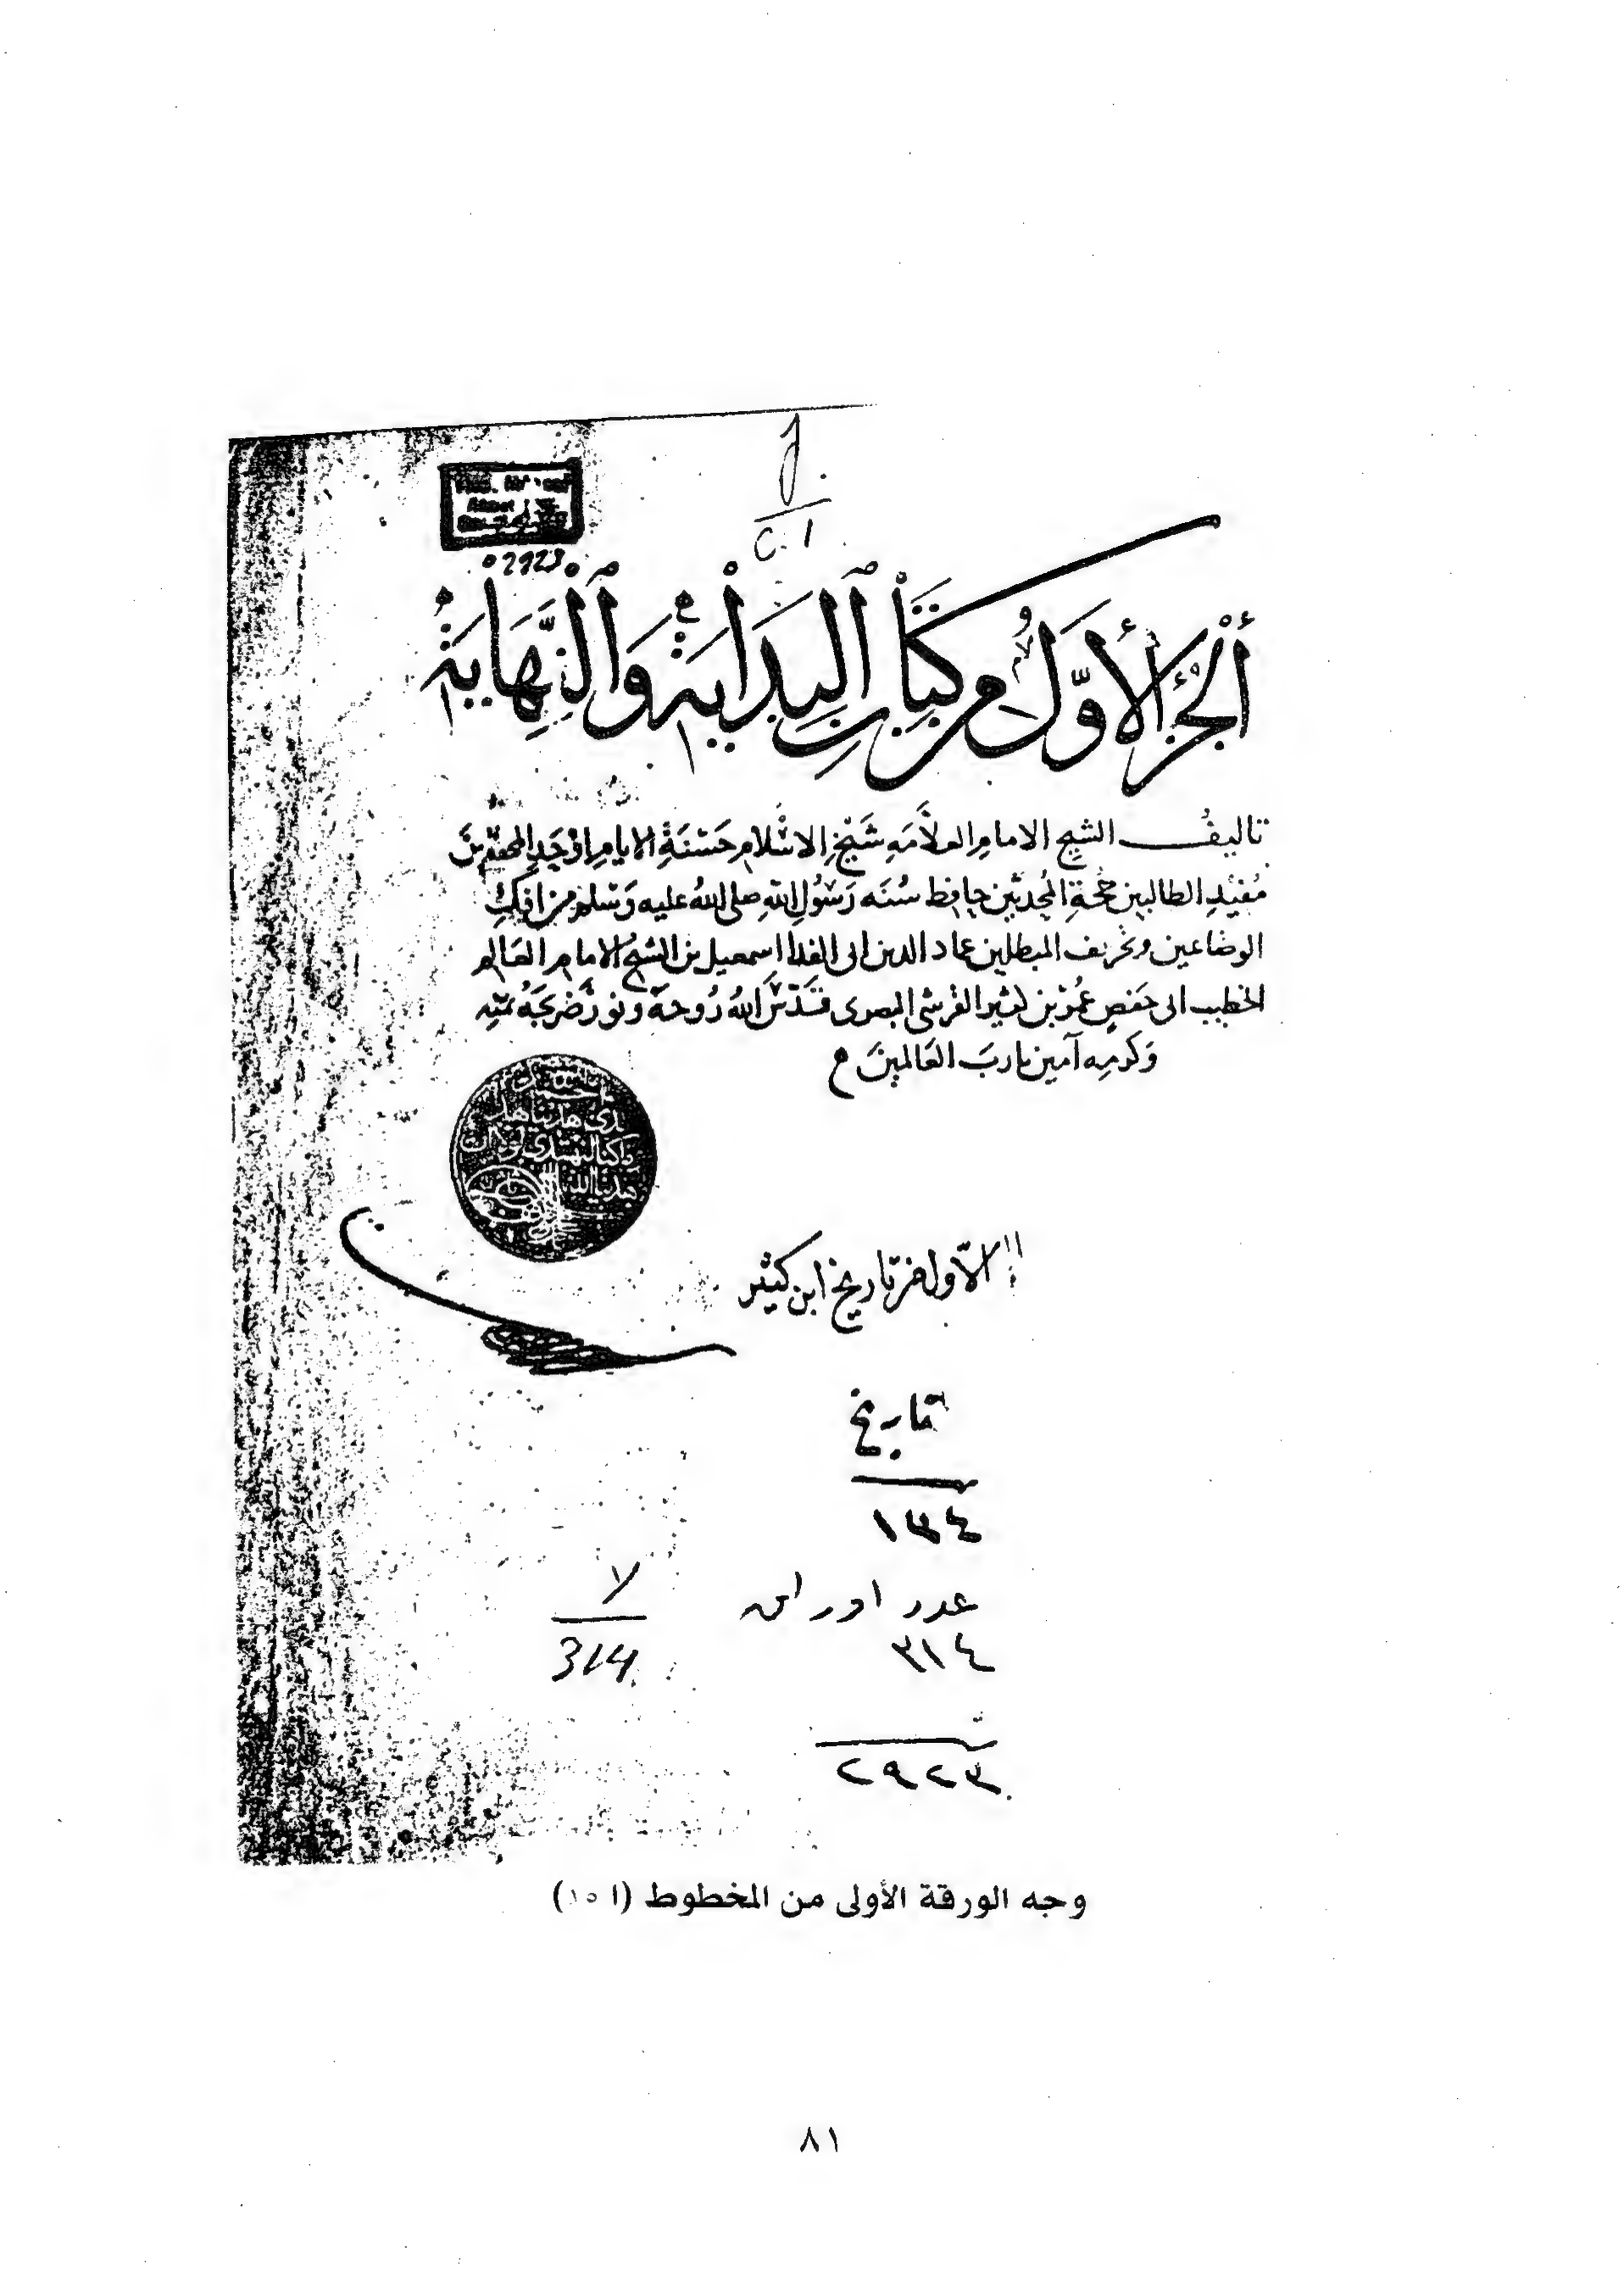 C. 1
02923
الجزء الأول من كتاب البداية والنهاية
تاليف الشيخ الامام العلامه شيخ الاسلام حسنة الايام اوحد المجتهدين
مفيد الطالبين حجة المحدثين حافظ سنه رسول الله صلى الله عليه وسلم من افك
الوضاعين وتحريف المبطلين عماد الدين ابى الفدا اسمعيل بن الشيخ الامام العالم
الخطيب ابى حفص عمر بن كثير القرشي البصروى قدس الله روحه ونور ضريحه بمنه
وكرمه آمين يارب العالمين
الاول من تاريخ ابن كثير
تاريخ
١٣٤
عدد اوراق
٣١٤
٧
314
٢٩٢٣
وجه الورقة الأولى من المخطوط (ا ١٥)
٨١